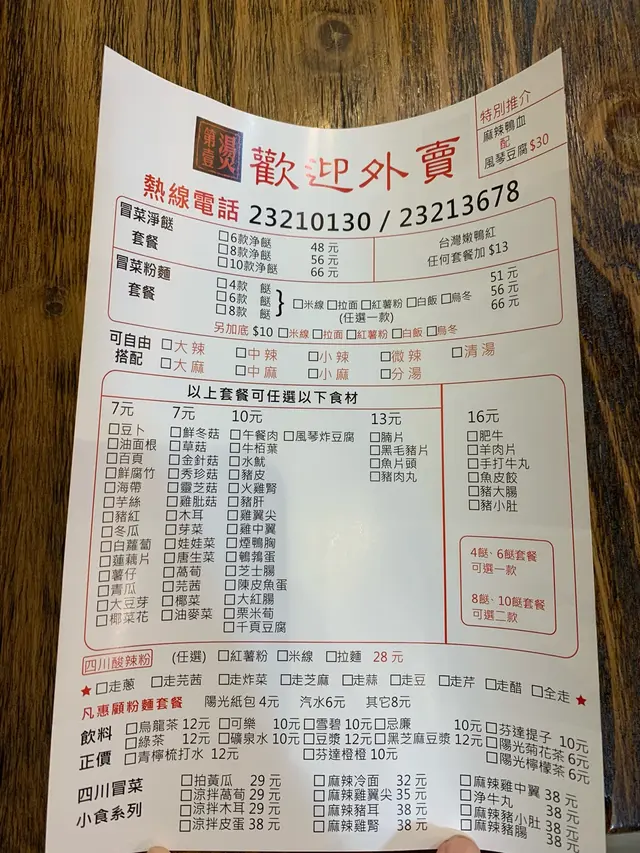 特別推介
麻辣鴨血
配
風琴豆腐 $30
第壹湯火
歡迎外賣
熱線電話 23210130 / 23213678
冒菜淨餸
套餐
□6款淨餸 48 元
□8款淨餸 56 元
□10款淨餸 66 元
台灣嫩鴨紅
任何套餐加 $13
冒菜粉麵
套餐
□4款 餸 51 元
□6款 餸 56 元
□8款 餸 66 元
□米線 □拉面 □紅薯粉 □白飯 □烏冬
(任選一款)
另加底 $10 □米線 □拉面 □紅薯粉 □白飯 □烏冬
可自由
搭配
□大辣 □中辣 □小辣 □微辣 □清湯
□大麻 □中麻 □小麻 □分湯
以上套餐可任選以下食材
7元
□豆卜
□油面根
□百頁
□鮮腐竹
□海帶
□芋絲
□豬紅
□冬瓜
□白蘿蔔
□蓮藕片
□薯仔
□青瓜
□大豆芽
□椰菜花
7元
□鮮冬菇
□草菇
□金針菇
□秀珍菇
□靈芝菇
□雞肶菇
□木耳
□芽菜
□娃娃菜
□唐生菜
□萵荀
□芫茜
□椰菜
□油麥菜
10元
□午餐肉 □風琴炸豆腐
□牛栢葉
□水魷
□豬皮
□火雞腎
□豬肝
□雞翼尖
□雞中翼
□煙鴨胸
□鵪鶉蛋
□芝士腸
□陳皮魚蛋
□大紅腸
□栗米荀
□千頁豆腐
13元
□腩片
□黑毛豬片
□魚片頭
□豬肉丸
16元
□肥牛
□羊肉片
□手打牛丸
□魚皮餃
□豬大腸
□豬小肚
4餸、6餸套餐
可選一款
8餸、10餸套餐
可選二款
四川酸辣粉 (任選) □紅薯粉 □米線 □拉麵 28 元
★ □走蔥 □走芫茜 □走炸菜 □走芝麻 □走蒜 □走豆 □走芹 □走醋 □全走 ★
凡惠顧粉麵套餐 陽光紙包 4元 汽水6元 其它8元
飲料
正價
□烏龍茶 12元 □可樂 10元 □雪碧 10元 □忌廉 10元 □芬達提子 10元
□綠茶 12元 □礦泉水 10元 □豆漿 12元 □黑芝麻豆漿 12元 □陽光菊花茶 6元
□青檸梳打水 12元 □芬達橙橙 10元 □陽光檸檬茶 6元
四川冒菜
小食系列
□拍黃瓜 29 元 □麻辣冷面 32 元 □麻辣雞中翼 38 元
□涼拌萵荀 29 元 □麻辣雞翼尖 35 元 □淨牛丸 38 元
□涼拌木耳 29 元 □麻辣豬耳 38 元 □麻辣豬小肚 38 元
□涼拌皮蛋 38 元 □麻辣雞腎 38 元 □麻辣豬腸 38 元